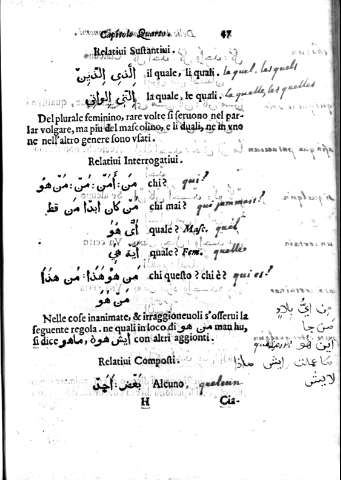 Capitolo Quarto. 47
Relatiui Sustantiui.
الَّذي الَّذِينَ il quale, li quali. la quel, les quels
الَّتِي الواتي la quale, le quali. la quelle, les quelles
Del plurale feminino, rare volte si seruono nel par-
lar volgare, ma piu del mascolino, e li duali, ne in vno
ne nell'altro genere sono vsati.
Relatiui Interrogatiui.
مَن؛ أمَّن؛ مِّن؛ مَن هُو chi? qui?
مَّن كان ابدا من قط chi mai? qui jammais?
أي هُو quale? Masc. quel
أية هي quale? Fem. quelle
مَن هُوَهٰذَا؛ مَن هٰذَا chi questo? chi è? qui es?
مَن هُو
Nelle cose inanimate, & irraggioneuoli s'osserui la
seguente regola. ne quali in loco di من هو man hu,
si dice ايش هوة، ماهو con altri aggionti.
من اي بلاد
من جا
اين هو
ايش ماذا
لايش
Relatiui Composti.
بَعْض؛ أحَد Alcuno, quelcun
H Cia-